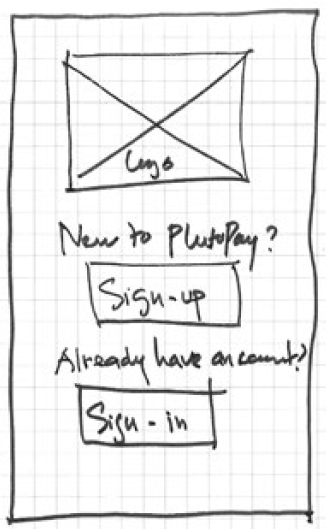 Logo
New to PlutoPay?
Sign-up
Already have an account?
Sign-in